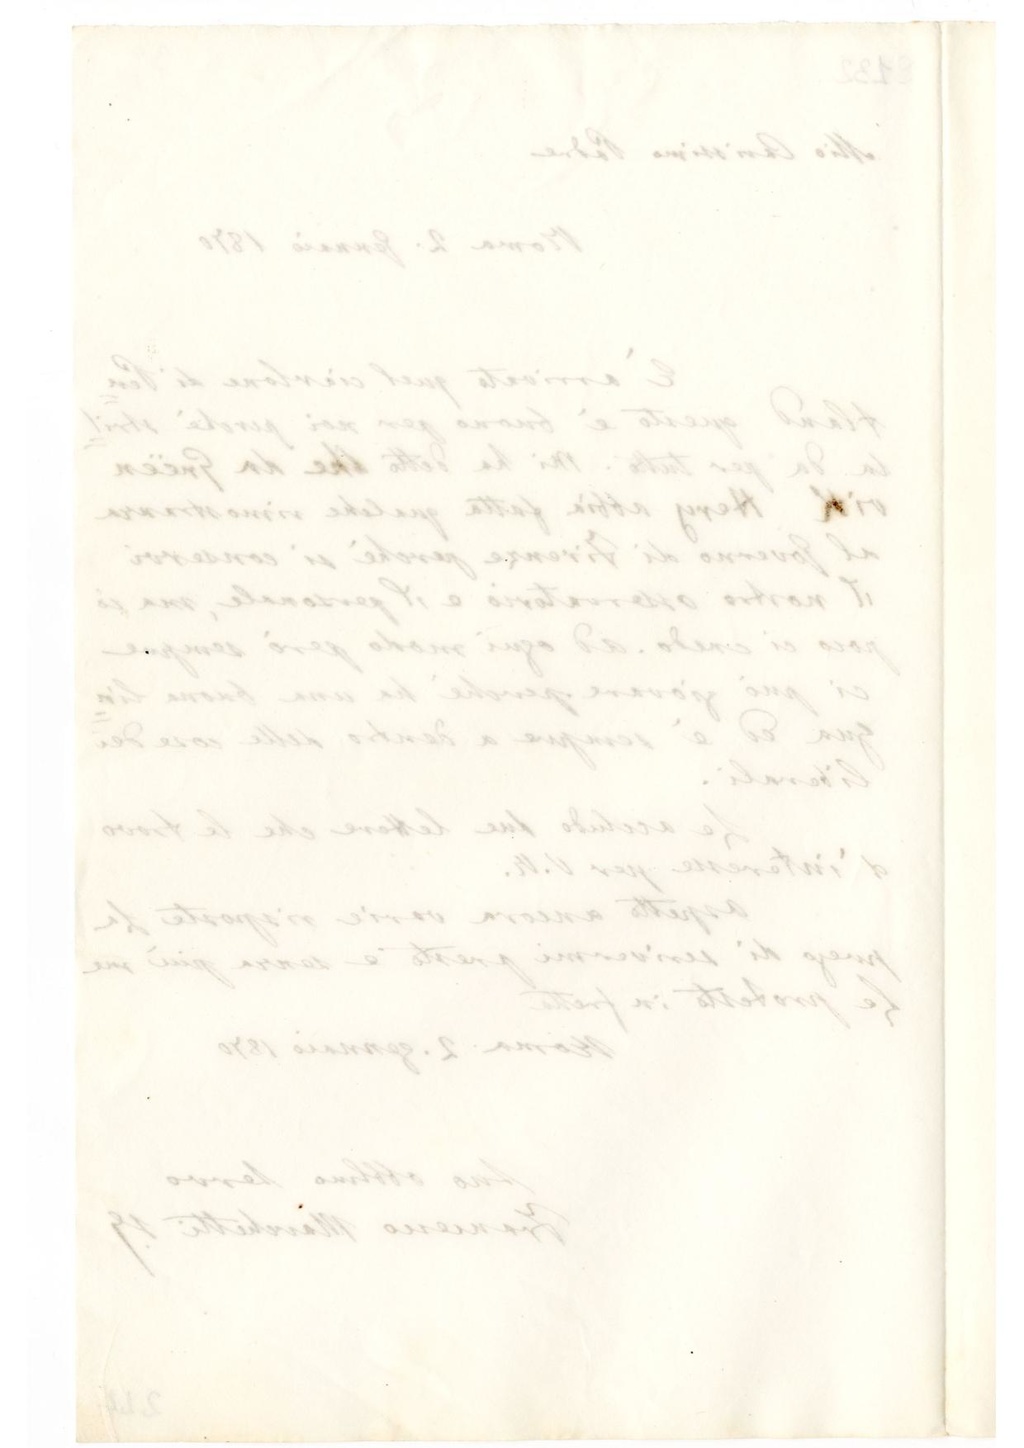 232
Mio Carissimo Padre
Roma 2. Gennaio 1870
È arrivato quel ciarlone di
questo è buono per noi perchè
la da per tutto. Mi ha detto che da Green
vik Hery abbia fatta qualche rimostranza
al Governo di Firenze perchè si conservi
il nostro osservatorio e il personale, ma io
poco ci credo. Ad ogni modo però sempre
ci può giovare perchè ha una buona lin
gua ed è sempre a dentro delle cose dei
liberali.
Le accludo due lettere che le trovo
d'interesse per V.R.
Aspetto ancora varie risposte La
prego di scrivermi presto e senza più me
Le protesto in fretta
Roma 2. gennaio 1870
Suo obbmo servo
Francesco Marchetti